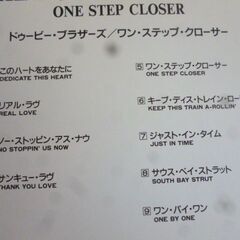 ONE STEP CLOSER
ドゥービー・ブラザーズ／ワン・ステップ・クローサー
このハートをあなたに
DEDICATE THIS HEART
リアル・ラヴ
REAL LOVE
ノー・ストッピン・アス・ナウ
NO STOPPIN' US NOW
サンキュー・ラヴ
THANK YOU LOVE
5 ワン・ステップ・クローサー
ONE STEP CLOSER
6 キープ・ディス・トレイン・ロー
KEEP THIS TRAIN A-ROLLIN'
7 ジャスト・イン・タイム
JUST IN TIME
8 サウス・ベイ・ストラット
SOUTH BAY STRUT
9 ワン・バイ・ワン
ONE BY ONE